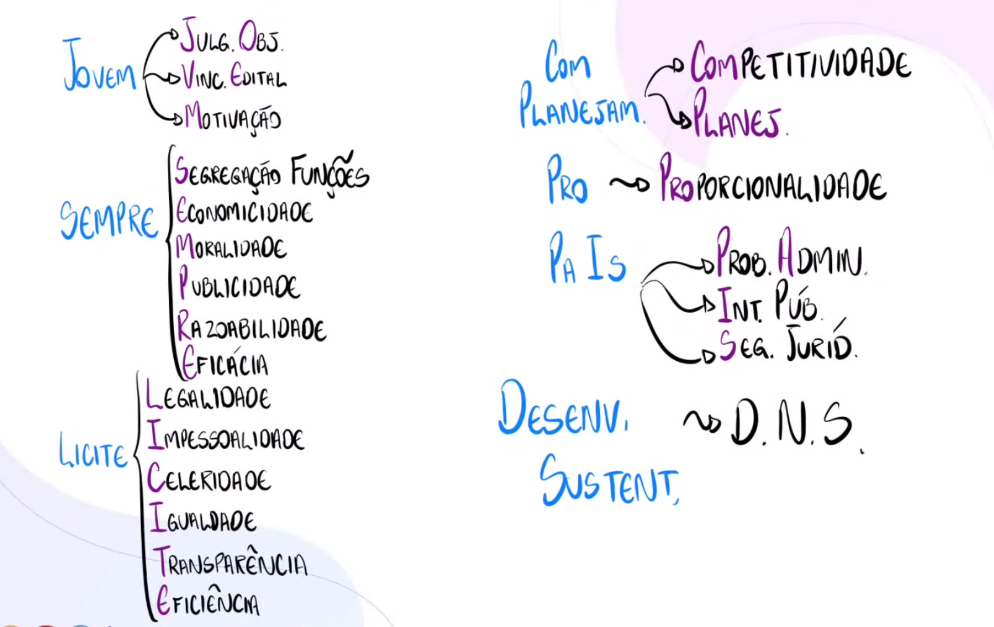 JOVEM
JULG. OBJ.
VINC. EDITAL
MOTIVAÇÃO
SEMPRE
SEGREGAÇÃO FUNÇÕES
ECONOMICIDADE
MORALIDADE
PUBLICIDADE
RAZOABILIDADE
EFICÁCIA
LICITE
LEGALIDADE
IMPESSOALIDADE
CELERIDADE
IGUALDADE
TRANSPARÊNCIA
EFICIÊNCIA
COM
PLANEJAM.
COMPETITIVIDADE
PLANEJ.
PRO
PROPORCIONALIDADE
PAIS
PROB. ADMIN.
INT. PÚB.
SEG. JURÍD.
DESENV.
SUSTENT.
D.N.S.